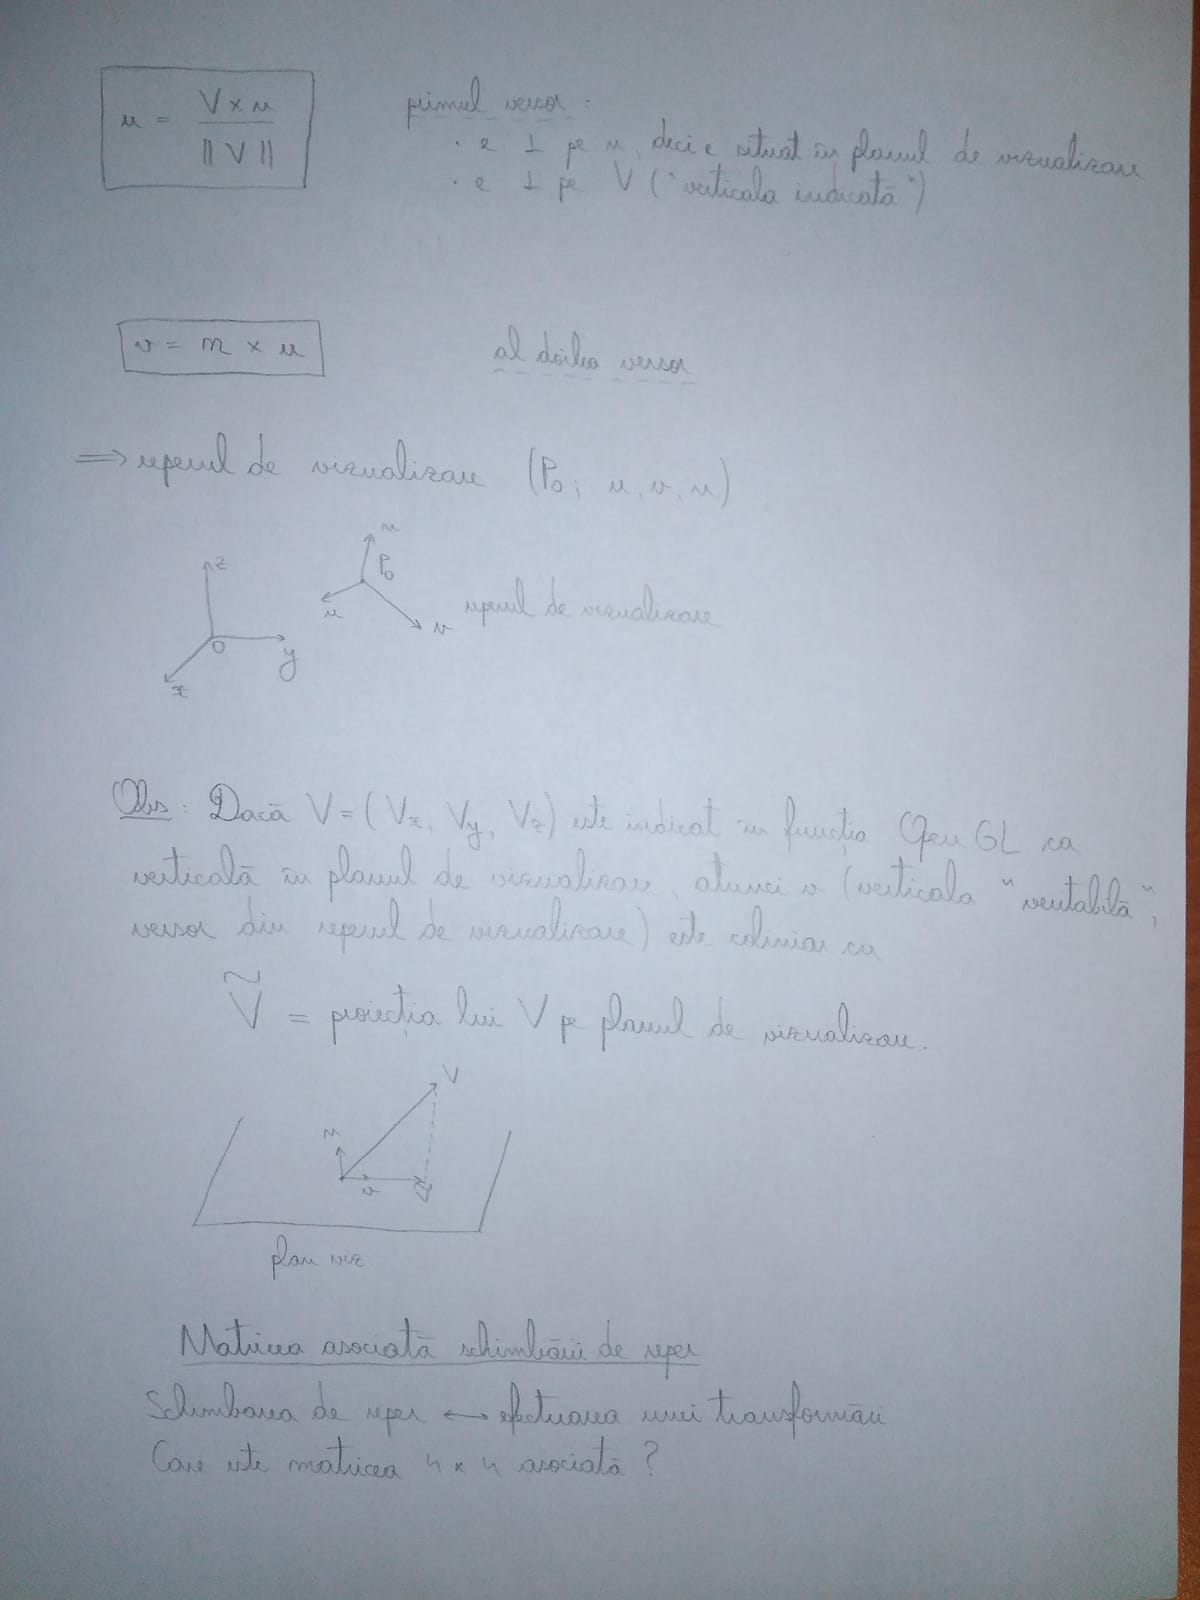 u = V × n / || V ||
primul versor :
· e ⊥ pe n, deci e situat în planul de vizualizare
· e ⊥ pe V ("verticala indicată")
v = n × u
al doilea versor
⟹ reperul de vizualizare (P₀; u, v, n)
z
n
P₀
u
v
reperul de vizualizare
O
y
x
Obs : Dacă V = (Vx, Vy, Vz) este indicat în funcția OpenGL ca
verticală în planul de vizualizare, atunci v (verticala "veritabilă",
versor din reperul de vizualizare) este coliniar cu
Ṽ = proiecția lui V pe planul de vizualizare.
V
n
v
plan viz.
Matricea asociată schimbării de reper
Schimbarea de reper ↔ efectuarea unei transformări
Care este matricea 4 × 4 asociată ?